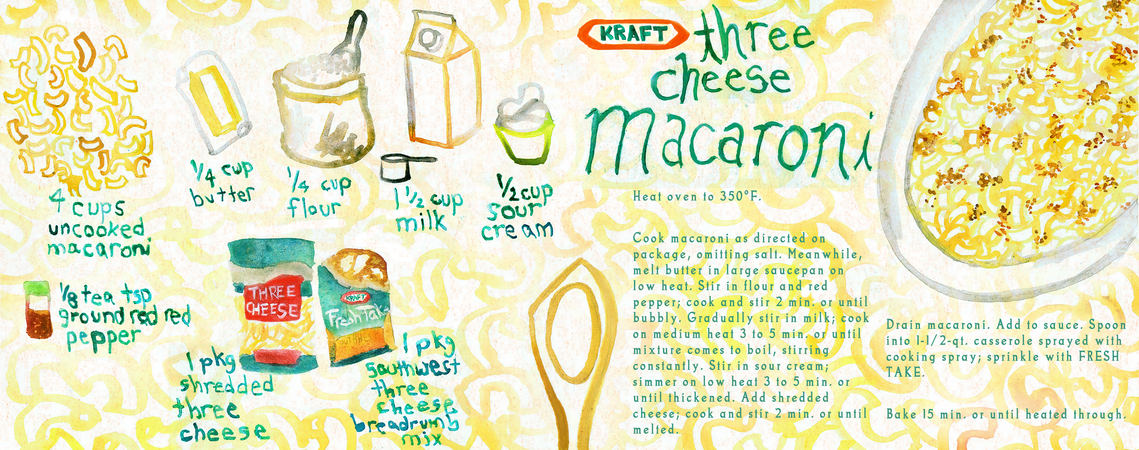 KRAFT three
cheese
macaroni
4 cups
uncooked
macaroni
1/4 cup
butter
1/4 cup
flour
1 1/2 cup
milk
1/2 cup
sour
cream
1/8 tea tsp
ground red red
pepper
THREE
CHEESE
KRAFT
Fresh Take
1 pkg
shredded
three
cheese
1 pkg
southwest
three
cheese
breadrumb
mix
Heat oven to 350°F.
Cook macaroni as directed on
package, omitting salt. Meanwhile,
melt butter in large saucepan on
low heat. Stir in flour and red
pepper; cook and stir 2 min. or until
bubbly. Gradually stir in milk; cook
on medium heat 3 to 5 min. or until
mixture comes to boil, stirring
constantly. Stir in sour cream;
simmer on low heat 3 to 5 min. or
until thickened. Add shredded
cheese; cook and stir 2 min. or until
melted.
Drain macaroni. Add to sauce. Spoon
into 1-1/2-qt. casserole sprayed with
cooking spray; sprinkle with FRESH
TAKE.
Bake 15 min. or until heated through.